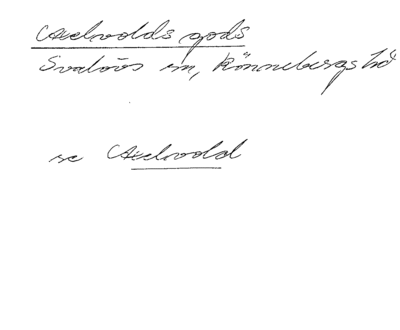 Axelvolds gods
Svalövs sn, Rönnebergs hd
se Axelvold